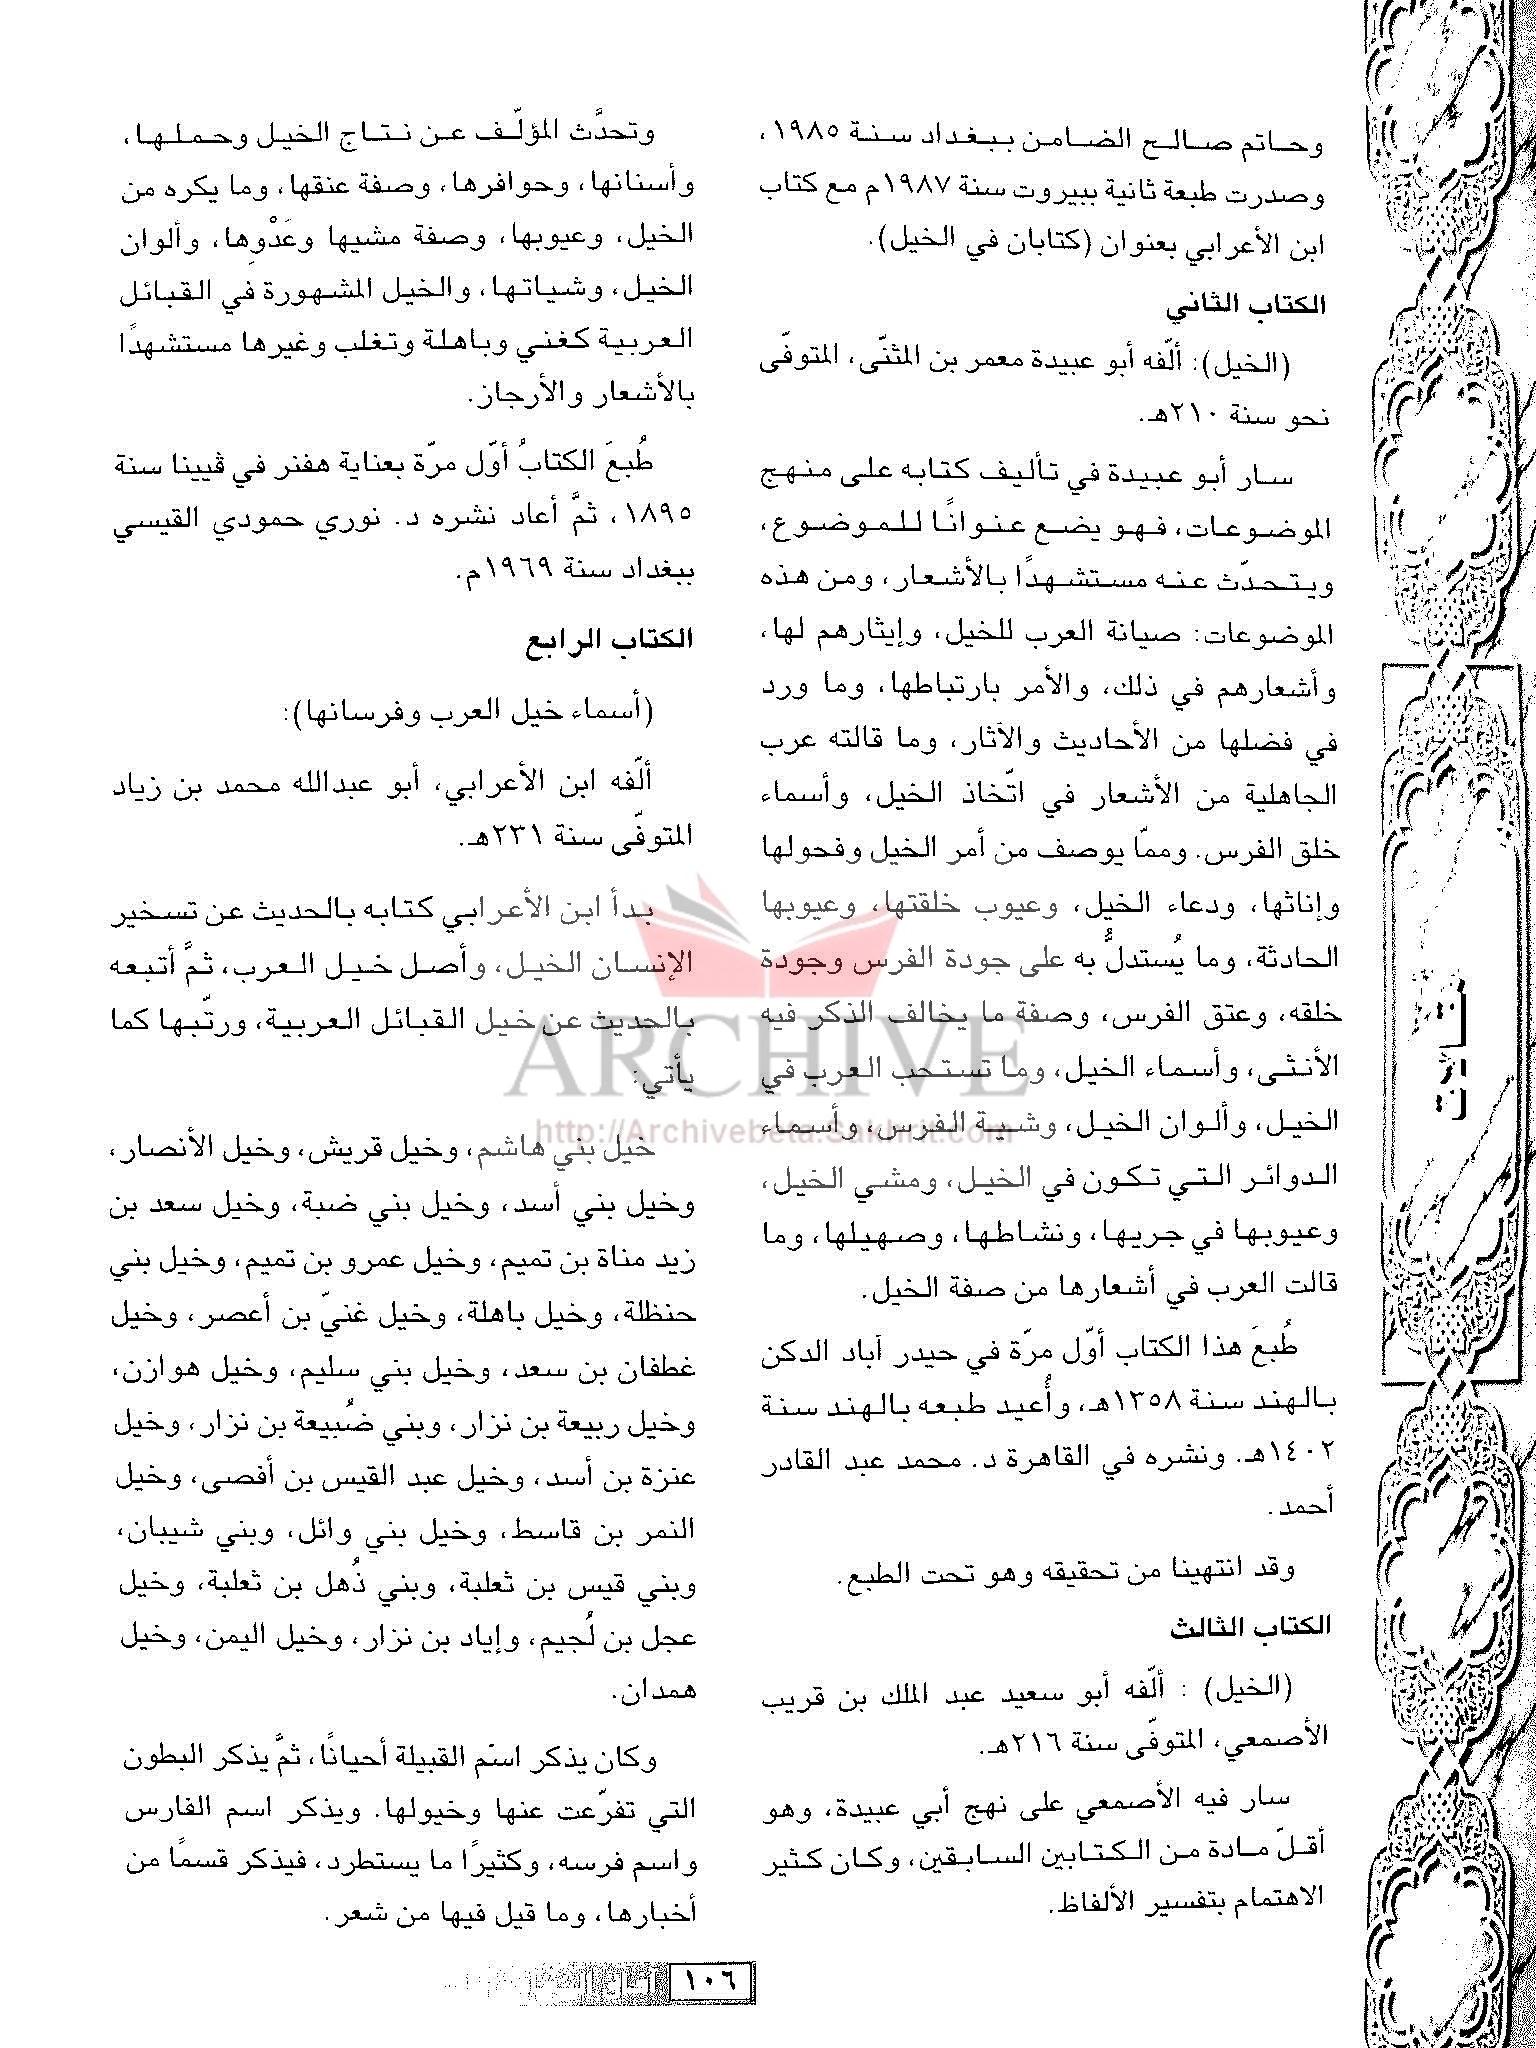 وحاتم صالح الضامن ببغداد سنة ١٩٨٥،
وصدرت طبعة ثانية ببيروت سنة ١٩٨٧م مع كتاب
ابن الأعرابي بعنوان (كتابان في الخيل).
الكتاب الثاني
(الخيل): ألّفه أبو عبيدة معمر بن المثنّى، المتوفّى
نحو سنة ٢١٠هـ.
سار أبو عبيدة في تأليف كتابه على منهج
الموضوعات، فهو يضع عنوانًا للموضوع،
ويتحدّث عنه مستشهدًا بالأشعار، ومن هذه
الموضوعات: صيانة العرب للخيل، وإيثارهم لها،
وأشعارهم في ذلك، والأمر بارتباطها، وما ورد
في فضلها من الأحاديث والآثار، وما قالته عرب
الجاهلية من الأشعار في اتّخاذ الخيل، وأسماء
خلق الفرس. وممّا يوصف من أمر الخيل وفحولها
وإناثها، ودعاء الخيل، وعيوب خلقتها، وعيوبها
الحادثة، وما يُستدلُّ به على جودة الفرس وجودة
خلقه، وعتق الفرس، وصفة ما يخالف الذكر فيه
الأنثى، وأسماء الخيل، وما تستحب العرب في
الخيل، وألوان الخيل، وشية الفرس، وأسماء
الدوائر التي تكون في الخيل، ومشي الخيل،
وعيوبها في جريها، ونشاطها، وصهيلها، وما
قالت العرب في أشعارها من صفة الخيل.
طُبعَ هذا الكتاب أوّل مرّة في حيدر آباد الدكن
بالهند سنة ١٣٥٨هـ، وأُعيد طبعه بالهند سنة
١٤٠٢هـ. ونشره في القاهرة د. محمد عبد القادر
أحمد.
وقد انتهينا من تحقيقه وهو تحت الطبع.
الكتاب الثالث
(الخيل) : ألّفه أبو سعيد عبد الملك بن قريب
الأصمعي، المتوفّى سنة ٢١٦هـ.
سار فيه الأصمعي على نهج أبي عبيدة، وهو
أقلّ مادة من الكتابين السابقين، وكان كثير
الاهتمام بتفسير الألفاظ.
وتحدَّث المؤلّف عن نتاج الخيل وحملها،
وأسنانها، وحوافرها، وصفة عنقها، وما يكره من
الخيل، وعيوبها، وصفة مشيها وعَدْوِها، وألوان
الخيل، وشياتها، والخيل المشهورة في القبائل
العربية كغني وباهلة وتغلب وغيرها مستشهدًا
بالأشعار والأرجاز.
طُبعَ الكتابُ أوّل مرّة بعناية هفنر في ڤيينا سنة
١٨٩٥، ثمَّ أعاد نشره د. نوري حمودي القيسي
ببغداد سنة ١٩٦٩م.
الكتاب الرابع
(أسماء خيل العرب وفرسانها):
ألّفه ابن الأعرابي، أبو عبدالله محمد بن زياد
المتوفّى سنة ٢٣١هـ.
بدأ ابن الأعرابي كتابه بالحديث عن تسخير
الإنسان الخيل، وأصل خيل العرب، ثمَّ أتبعه
بالحديث عن خيل القبائل العربية، ورتّبها كما
يأتي:
خيل بني هاشم، وخيل قريش، وخيل الأنصار،
وخيل بني أسد، وخيل بني ضبة، وخيل سعد بن
زيد مناة بن تميم، وخيل عمرو بن تميم، وخيل بني
حنظلة، وخيل باهلة، وخيل غنيّ بن أعصر، وخيل
غطفان بن سعد، وخيل بني سليم، وخيل هوازن،
وخيل ربيعة بن نزار، وبني ضُبيعة بن نزار، وخيل
عنزة بن أسد، وخيل عبد القيس بن أفصى، وخيل
النمر بن قاسط، وخيل بني وائل، وبني شيبان،
وبني قيس بن ثعلبة، وبني ذُهل بن ثعلبة، وخيل
عجل بن لُجيم، وإياد بن نزار، وخيل اليمن، وخيل
همدان.
وكان يذكر اسم القبيلة أحيانًا، ثمَّ يذكر البطون
التي تفرّعت عنها وخيولها. ويذكر اسم الفارس
واسم فرسه، وكثيرًا ما يستطرد، فيذكر قسمًا من
أخبارها، وما قيل فيها من شعر.
ARCHIVE
http://Archivebeta.Sakhrit.com
مقالات
١٠٦